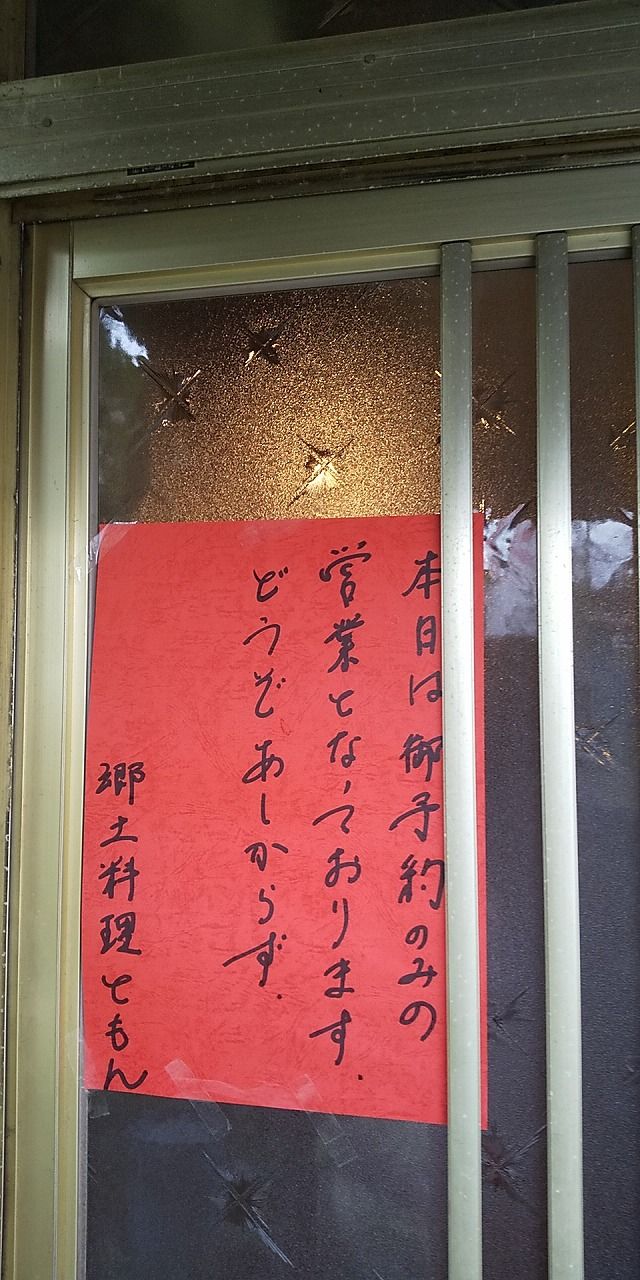 本日は御予約のみの
営業となっております.
どうぞあしからず.
郷土料理ともん